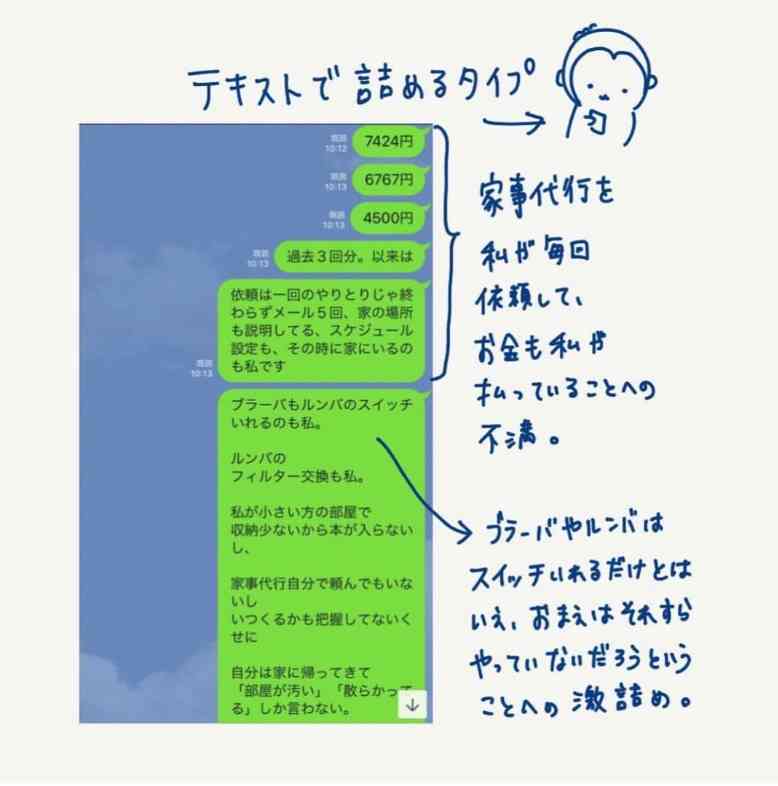 テキストで詰めるタイプ
既読
10:12
7424円
既読
10:13
6767円
既読
10:13
4500円
既読
10:13
過去３回分。以来は
依頼は一回のやりとりじゃ終
わらずメール５回、家の場所
も説明してる、スケジュール
設定も、その時に家にいるの
も私です
既読
10:13
ブラーバもルンバのスイッチ
いれるのも私。
ルンバの
フィルター交換も私。
私が小さい方の部屋で
収納少ないから本が入らない
し、
家事代行自分で頼んでもいな
いし
いつくるかも把握してないく
せに
自分は家に帰ってきて
「部屋が汚い」「散らかって
る」しか言わない。
家事代行を
私が毎回
依頼して、
お金も私が
払っていることへの
不満。
ブラーバやルンバは
スイッチいれるだけとは
いえ、おまえはそれすら
やっていないだろうという
ことへの激詰め。